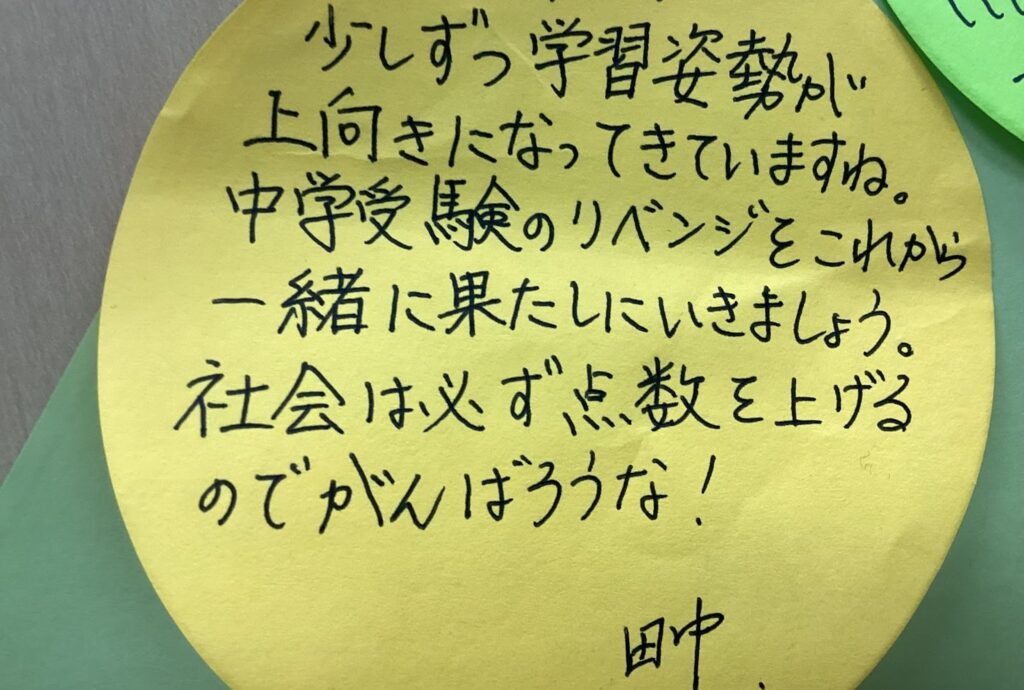 少しずつ学習姿勢が
上向きになってきていますね。
中学受験のリベンジをこれから
一緒に果たしにいきましょう。
社会は必ず点数を上げる
のでがんばろうな!
田中